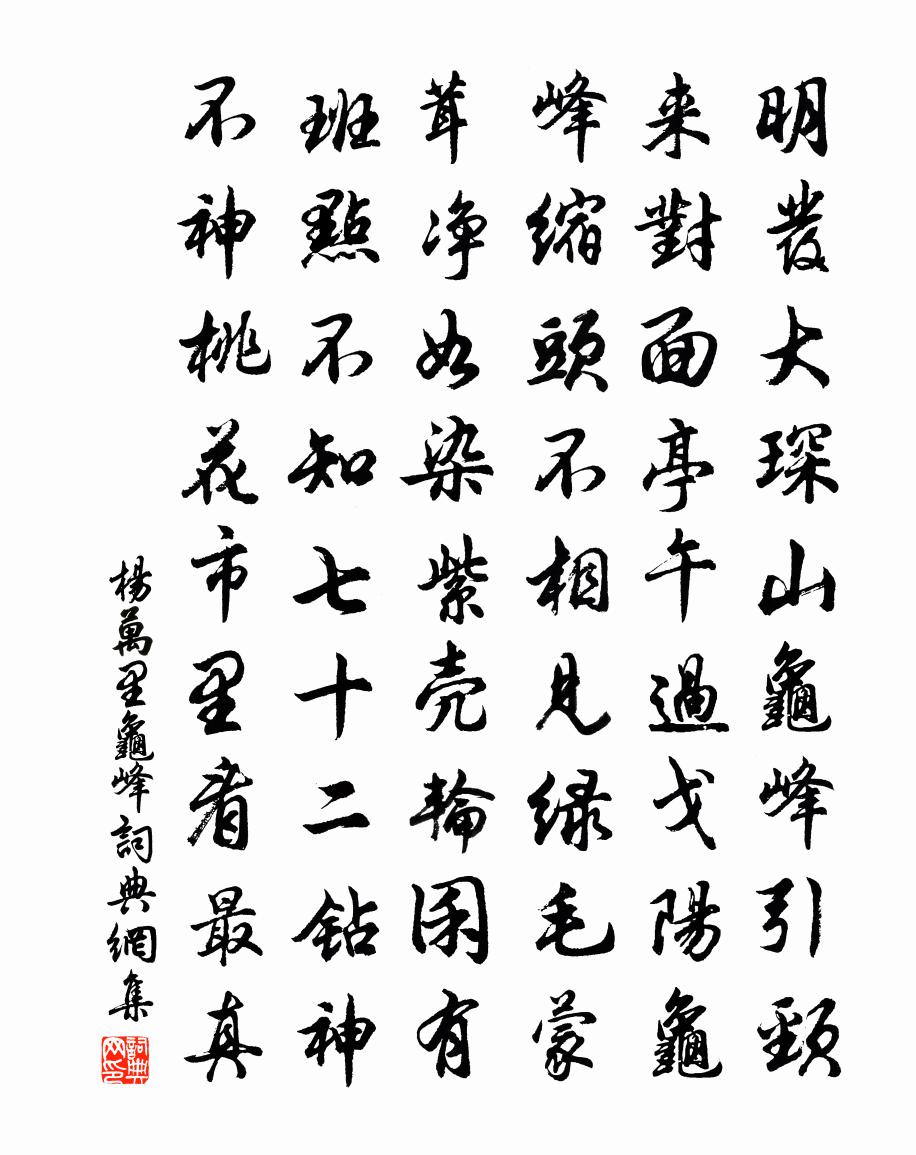 明發大琛山龜峰引頸
来對面亭午過弋陽龜
峰缩頭不相見緑毛蒙
茸净如染紫壳輪囷有
班點不知七十二鈷神
不神桃花市里看最真
楊萬里龜峰詞典網集
詞典网印